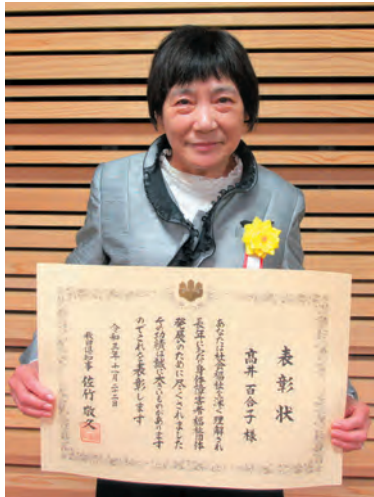 表彰状
髙井 百合子 様
あなたは社会福祉を深く理解され
長年にわたり身体障害者福祉団体
発展のために尽くされました
その功績は誠に大きいものがあります
のでこれを表彰します
令和三年十一月二十二日
秋田県知事 佐竹 敬久